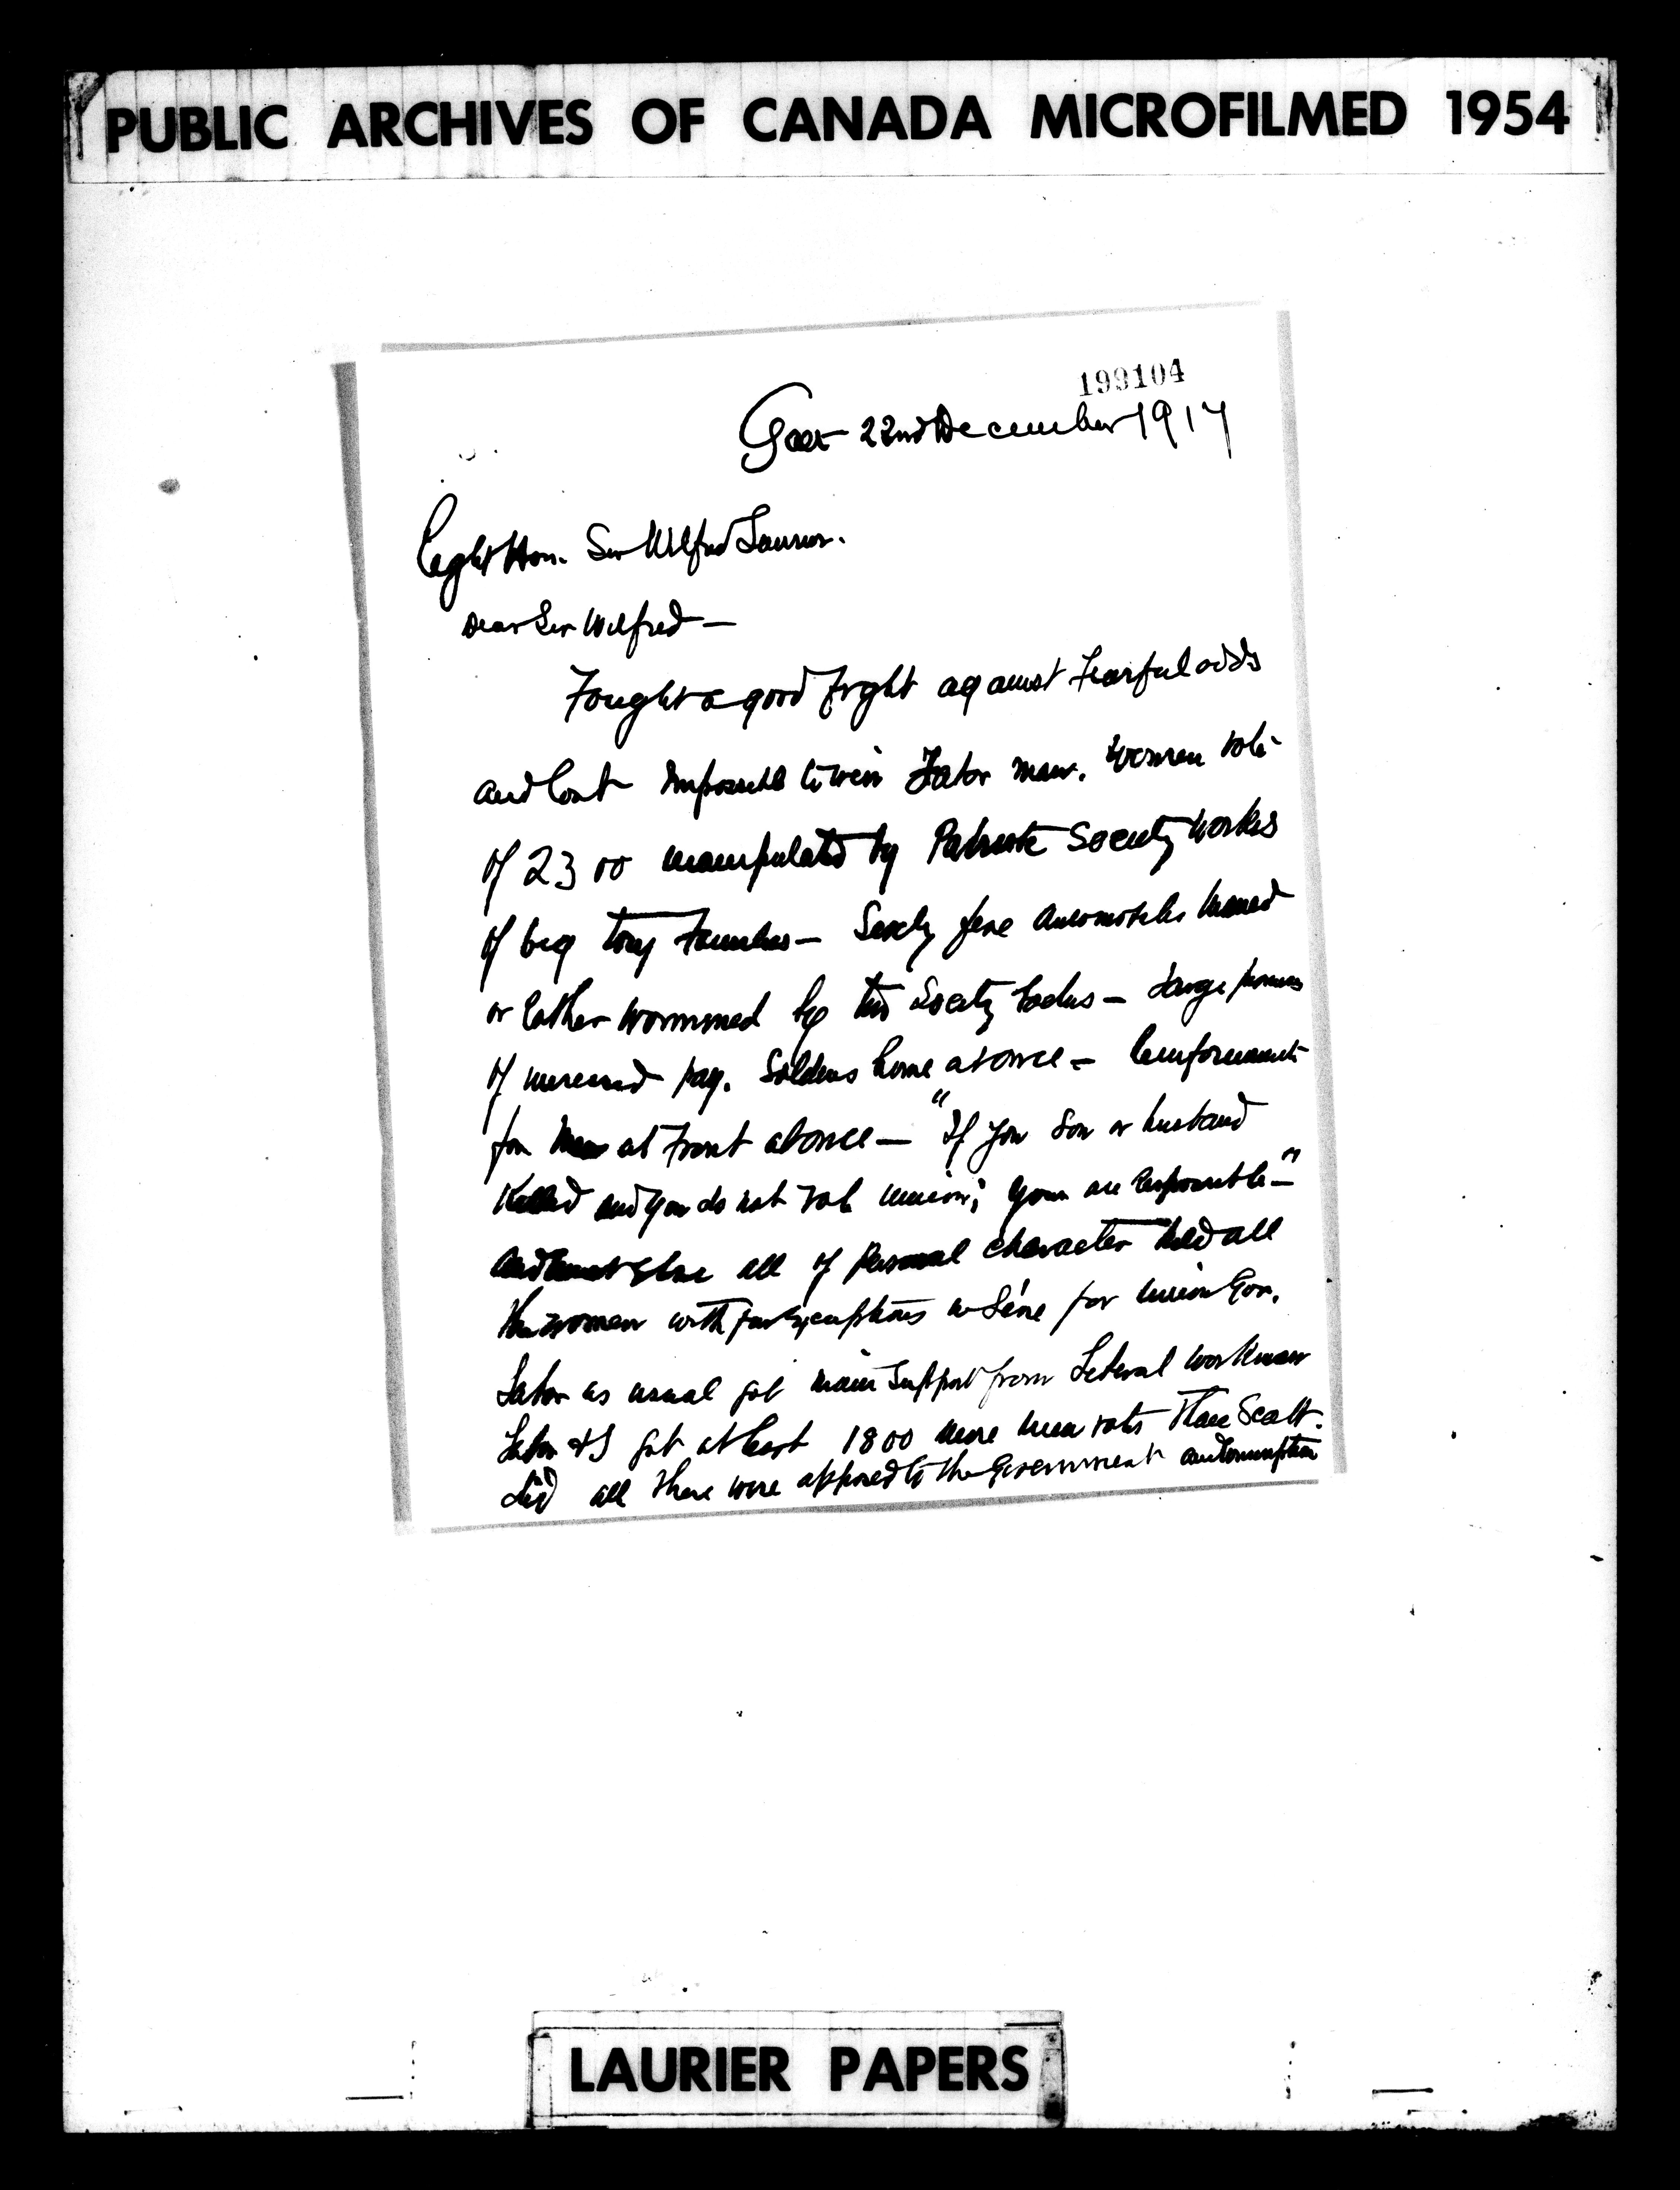 PUBLIC ARCHIVES OF CANADA MICROFILMED 1954
199104
Galt 22nd December 1917
Right Hon. Sir Wilfred Laurier.
Dear Sir Wilfred —
Fought a good fight against fearful odds
and lost impossible to win Labor man. Women vote
of 2300 manipulated by Patriotic Society works
of big Tory Families — Sixty five Automobiles manned
or rather wommned by the Society Ladies — Large promises
of increased pay. Soldiers home at once — Reinforcements
for men at Front at once — "If your Son or husband
Killed and you do not vote union; you are responsible —"
and all of Personal character held all
the women with few exceptions in line for union Gov.
Labor as usual got main support from Liberal workman
Labor & I got at least 1800 more men votes than Scott
did all these were opposed to the Government and conscription
LAURIER PAPERS